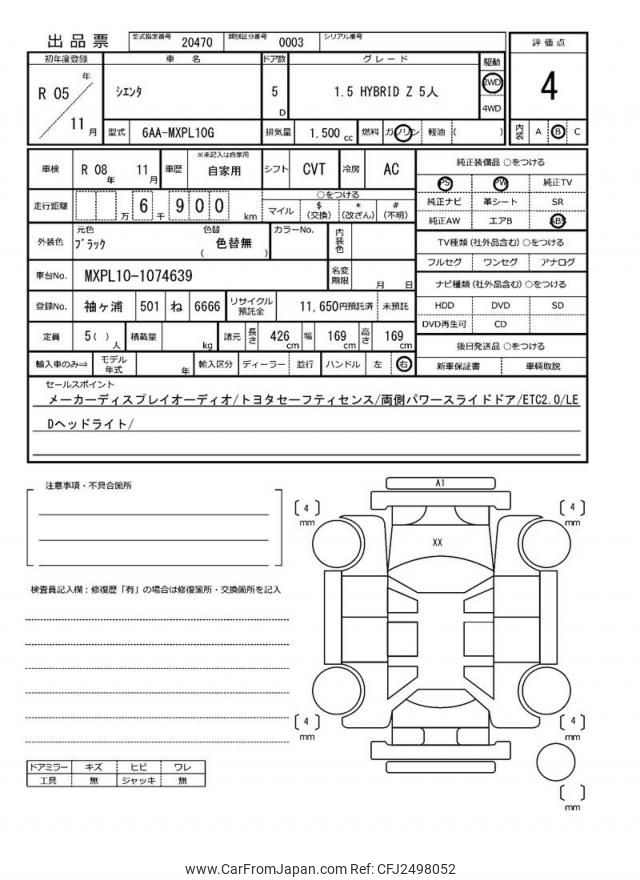 出品票 型式指定番号 20470 類別区分番号 0003 シリアル番号
評価点
初年度登録 車名 ドア数 グレード 駆動
R 05 年 ｼｴﾝﾀ 5 D 1.5 HYBRID Z 5人 2WD 4
4WD
11 月 型式 6AA-MXPL10G 排気量 1,500 cc 燃料 ガソリン 軽油 ( ) 内装 A B C
車検 R 08 年 11 月 車歴 ※未記入は自家用 自家用 シフト CVT 冷房 AC
純正装備品 ○をつける
PS PW 純正TV
走行距離 万 6 千 9 0 0 km ○をつける
マイル $(交換) *(改ざん) #(不明)
純正ナビ 革シート SR
純正AW エアB ABS
外装色 元色 ﾌﾞﾗｯｸ 色替 ( 色替無 ) カラーNo. 内装色
TV種類 (社外品含む) ○をつける
フルセグ ワンセグ アナログ
車台No. MXPL10-1074639 名変期限 月 日
ナビ種類 (社外品含む) ○をつける
登録No. 袖ヶ浦 501 ね 6666 リサイクル預託金 11,650円預託済 未預託
HDD DVD SD
DVD再生可 CD
定員 5( ) 人 積載量 kg 諸元 長さ 426 cm 幅 169 cm 高さ 169 cm
後日発送品 ○をつける
輸入車のみ⇒ モデル年式 年 輸入区分 ディーラー 並行 ハンドル 左 右
新車保証書 車輌取説
セールスポイント
メーカーディスプレイオーディオ/トヨタセーフティセンス/両側パワースライドドア/ETC2.0/LE
Dヘッドライト/
注意事項・不具合箇所
A1
[ 4 ] mm
[ 4 ] mm
XX
検査員記入欄：修復歴「有」の場合は修復箇所・交換箇所を記入
[ 4 ] mm
[ 4 ] mm
ドアミラー キズ ヒビ ワレ
工具 無 ジャッキ 無
[ ] mm
www.CarFromJapan.com Ref: CFJ2498052